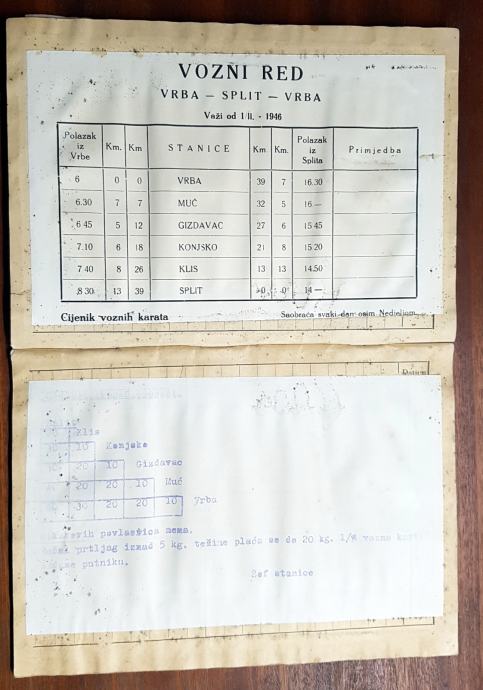 VOZNI RED
VRBA — SPLIT — VRBA
Važi od 1/II. - 1946
Polazak iz Vrbe Km. Km STANICE Km. Km. Polazak iz Splita Primjedba
6 0 0 VRBA 39 7 16.30
6.30 7 7 MUĆ 32 5 16 —
6 45 5 12 GIZDAVAC 27 6 15 45
7.10 6 18 KONJSKO 21 8 15 20
7 40 8 26 KLIS 13 13 14.50
8 30 13 39 SPLIT 0 0 14 —
Cijenik voznih karata Saobraća svaki dan osim Nedjeljom
Klis
10 Konjsko
20 10 Gizdavac
20 20 10 Muć
30 20 20 10 Vrba
povlastica nema.
prtljag iznad 5 kg. težine plaća se do 20 kg. 1/2 vozne
putniku.
Šef stanice